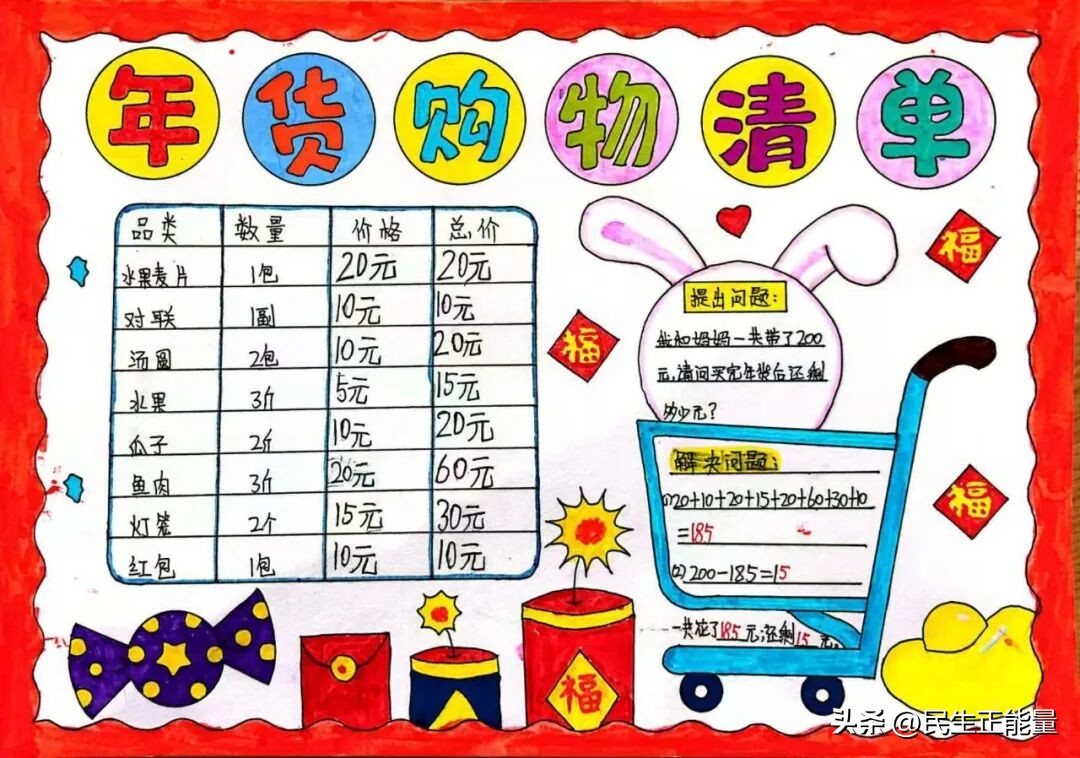 年货购物清单
品类 数量 价格 总价
水果麦片 1包 20元 20元
对联 1副 10元 10元
汤圆 2包 10元 20元
水果 3斤 5元 15元
瓜子 2斤 10元 20元
鱼肉 3斤 20元 60元
灯笼 2个 15元 30元
红包 1包 10元 10元
福
福
福
福
提出问题:
我和妈妈一共带了200
元,请问买完年货后还剩
多少元?
解决问题:
(1)20+10+20+15+20+60+30+10
=185
(2)200-185=15
一共花了185元,还剩15元。
头条 @民生正能量